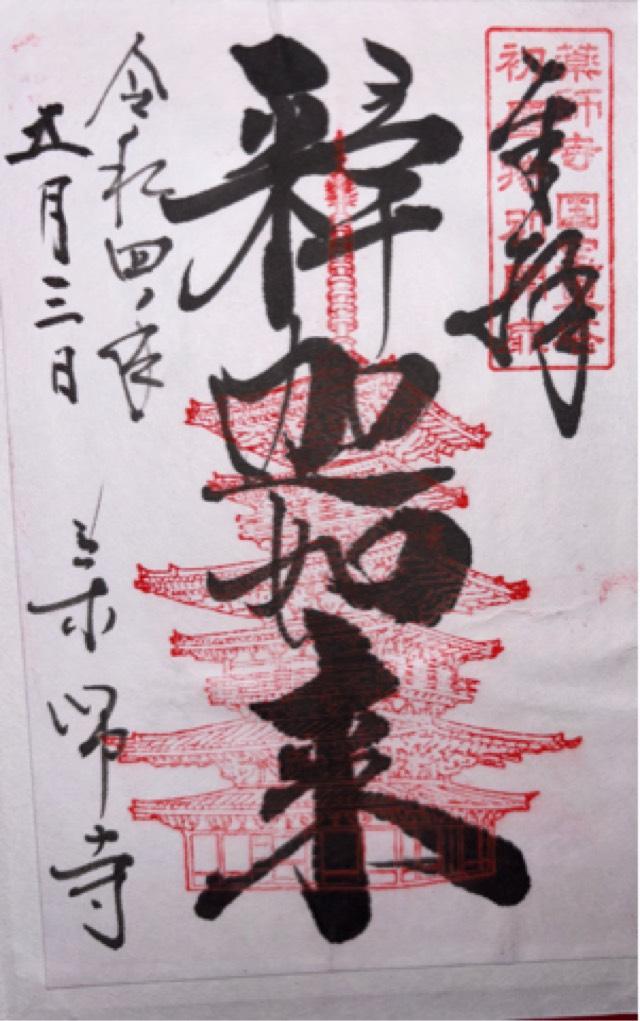 奉拝
薬師寺 國宝東塔
初層特別開扉
釈迦如来
令和四年
五月三日
薬師寺